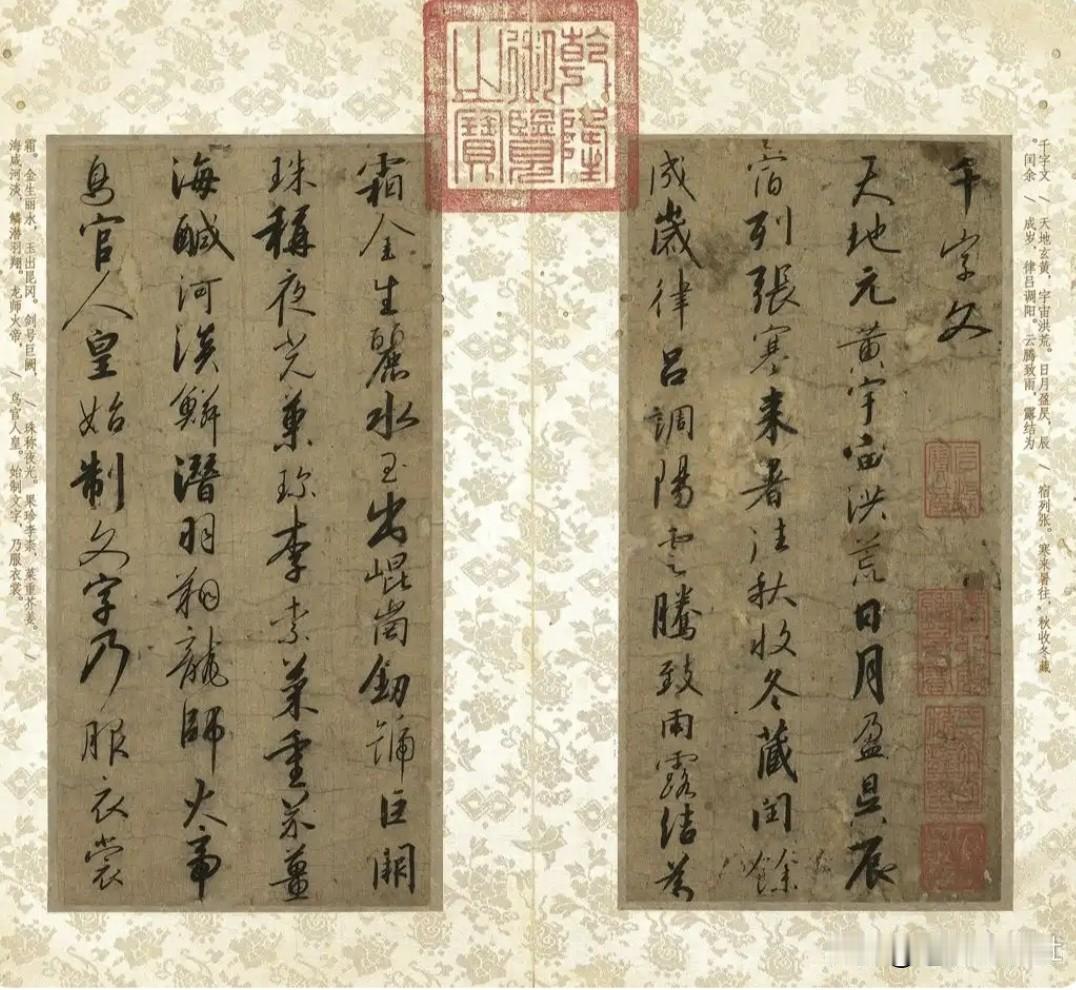 乾隆御覽之寶
千字文 / 天地玄黄，宇宙洪荒。日月盈昃，辰 / 宿列张。寒来暑往，秋收冬藏
。闰余 / 成岁，律吕调阳。云腾致雨，露结为
千字文
天地元黃宇宙洪荒日月盈昃辰
宿列張寒来暑往秋收冬藏閏餘
成歲律吕調陽雲騰致雨露結為
霜金生麗水玉出崐崗劒號巨闕
珠稱夜光菓珍李柰菜重芥薑
海鹹河淡鱗潛羽翔龍師火帝
鳥官人皇始制文字乃服衣裳
霜。金生丽水，玉出昆冈。剑号巨阙， / 珠称夜光。果珍李柰，菜重芥姜。 /
海咸河淡，鳞潜羽翔。龙师火帝， / 鸟官人皇。始制文字，乃服衣裳。